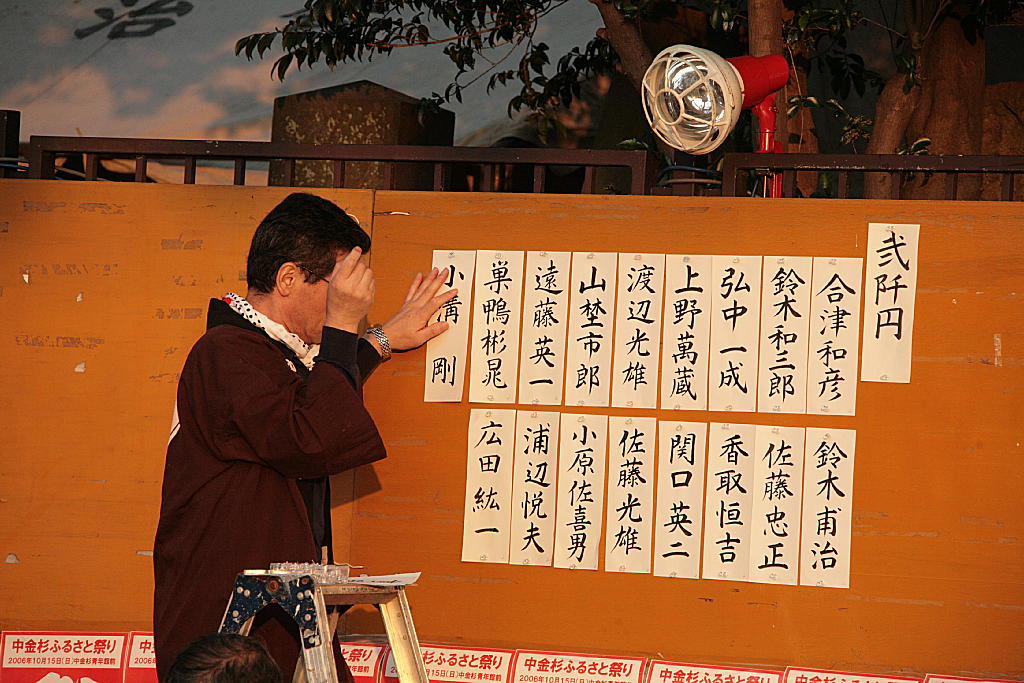 弐阡円
合津和彦
鈴木和三郎
弘中一成
上野萬蔵
渡辺光雄
山埜市郎
遠藤英一
巣鴨彬晁
小溝 剛
鈴木甫治
佐藤忠正
香取恒吉
関口英二
佐藤光雄
小原佐喜男
浦辺悦夫
広田紘一
治
中金杉ふるさと祭り
2006年10月15日(日)中金杉青年館前
中
200
祭り
館前
ふるさと祭り
15日(日)中金杉青年館前
中金杉ふるさと祭り
2006年10月15日(日)中金杉青年館前
中金杉ふるさと祭り
中金杉ふるさと祭り